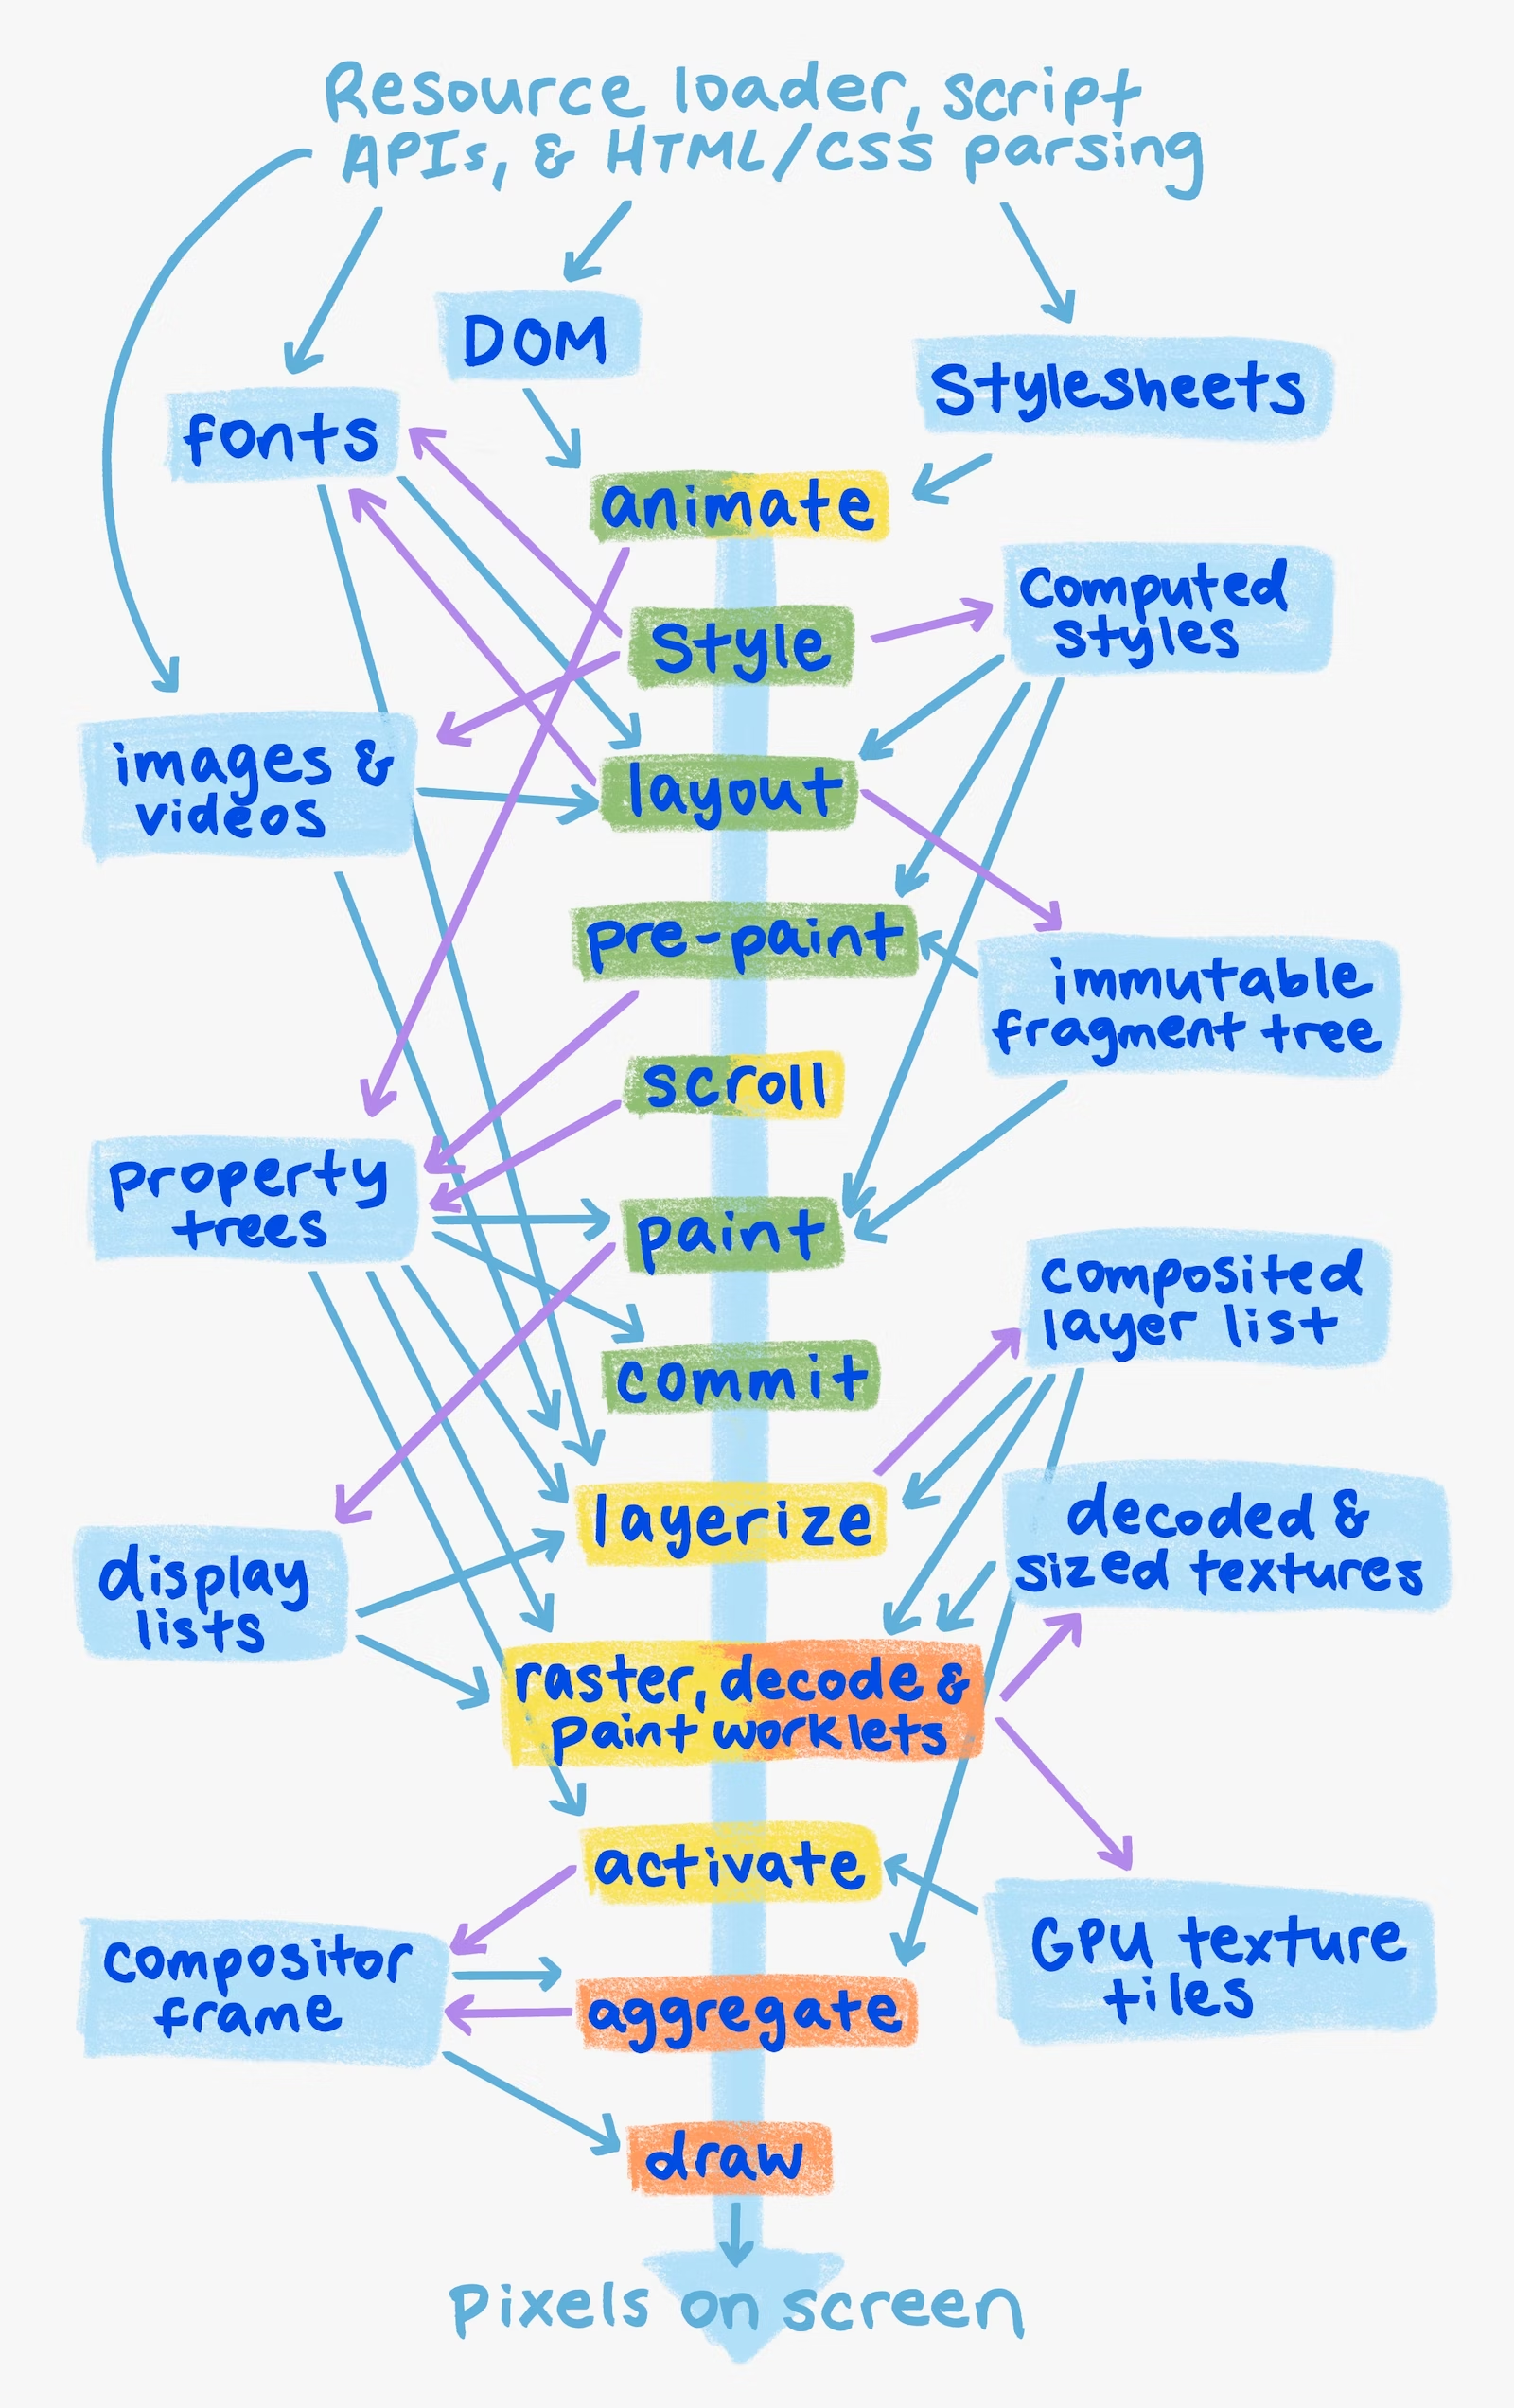 Resource loader, script
APIs, & HTML/CSS parsing
DOM
Stylesheets
fonts
animate
Computed
styles
Style
images &
videos
layout
pre-paint
immutable
fragment tree
scroll
property
trees
paint
composited
layer list
commit
layerize
decoded &
sized textures
display
lists
raster, decode &
paint worklets
activate
GPU texture
tiles
compositor
frame
aggregate
draw
pixels on screen